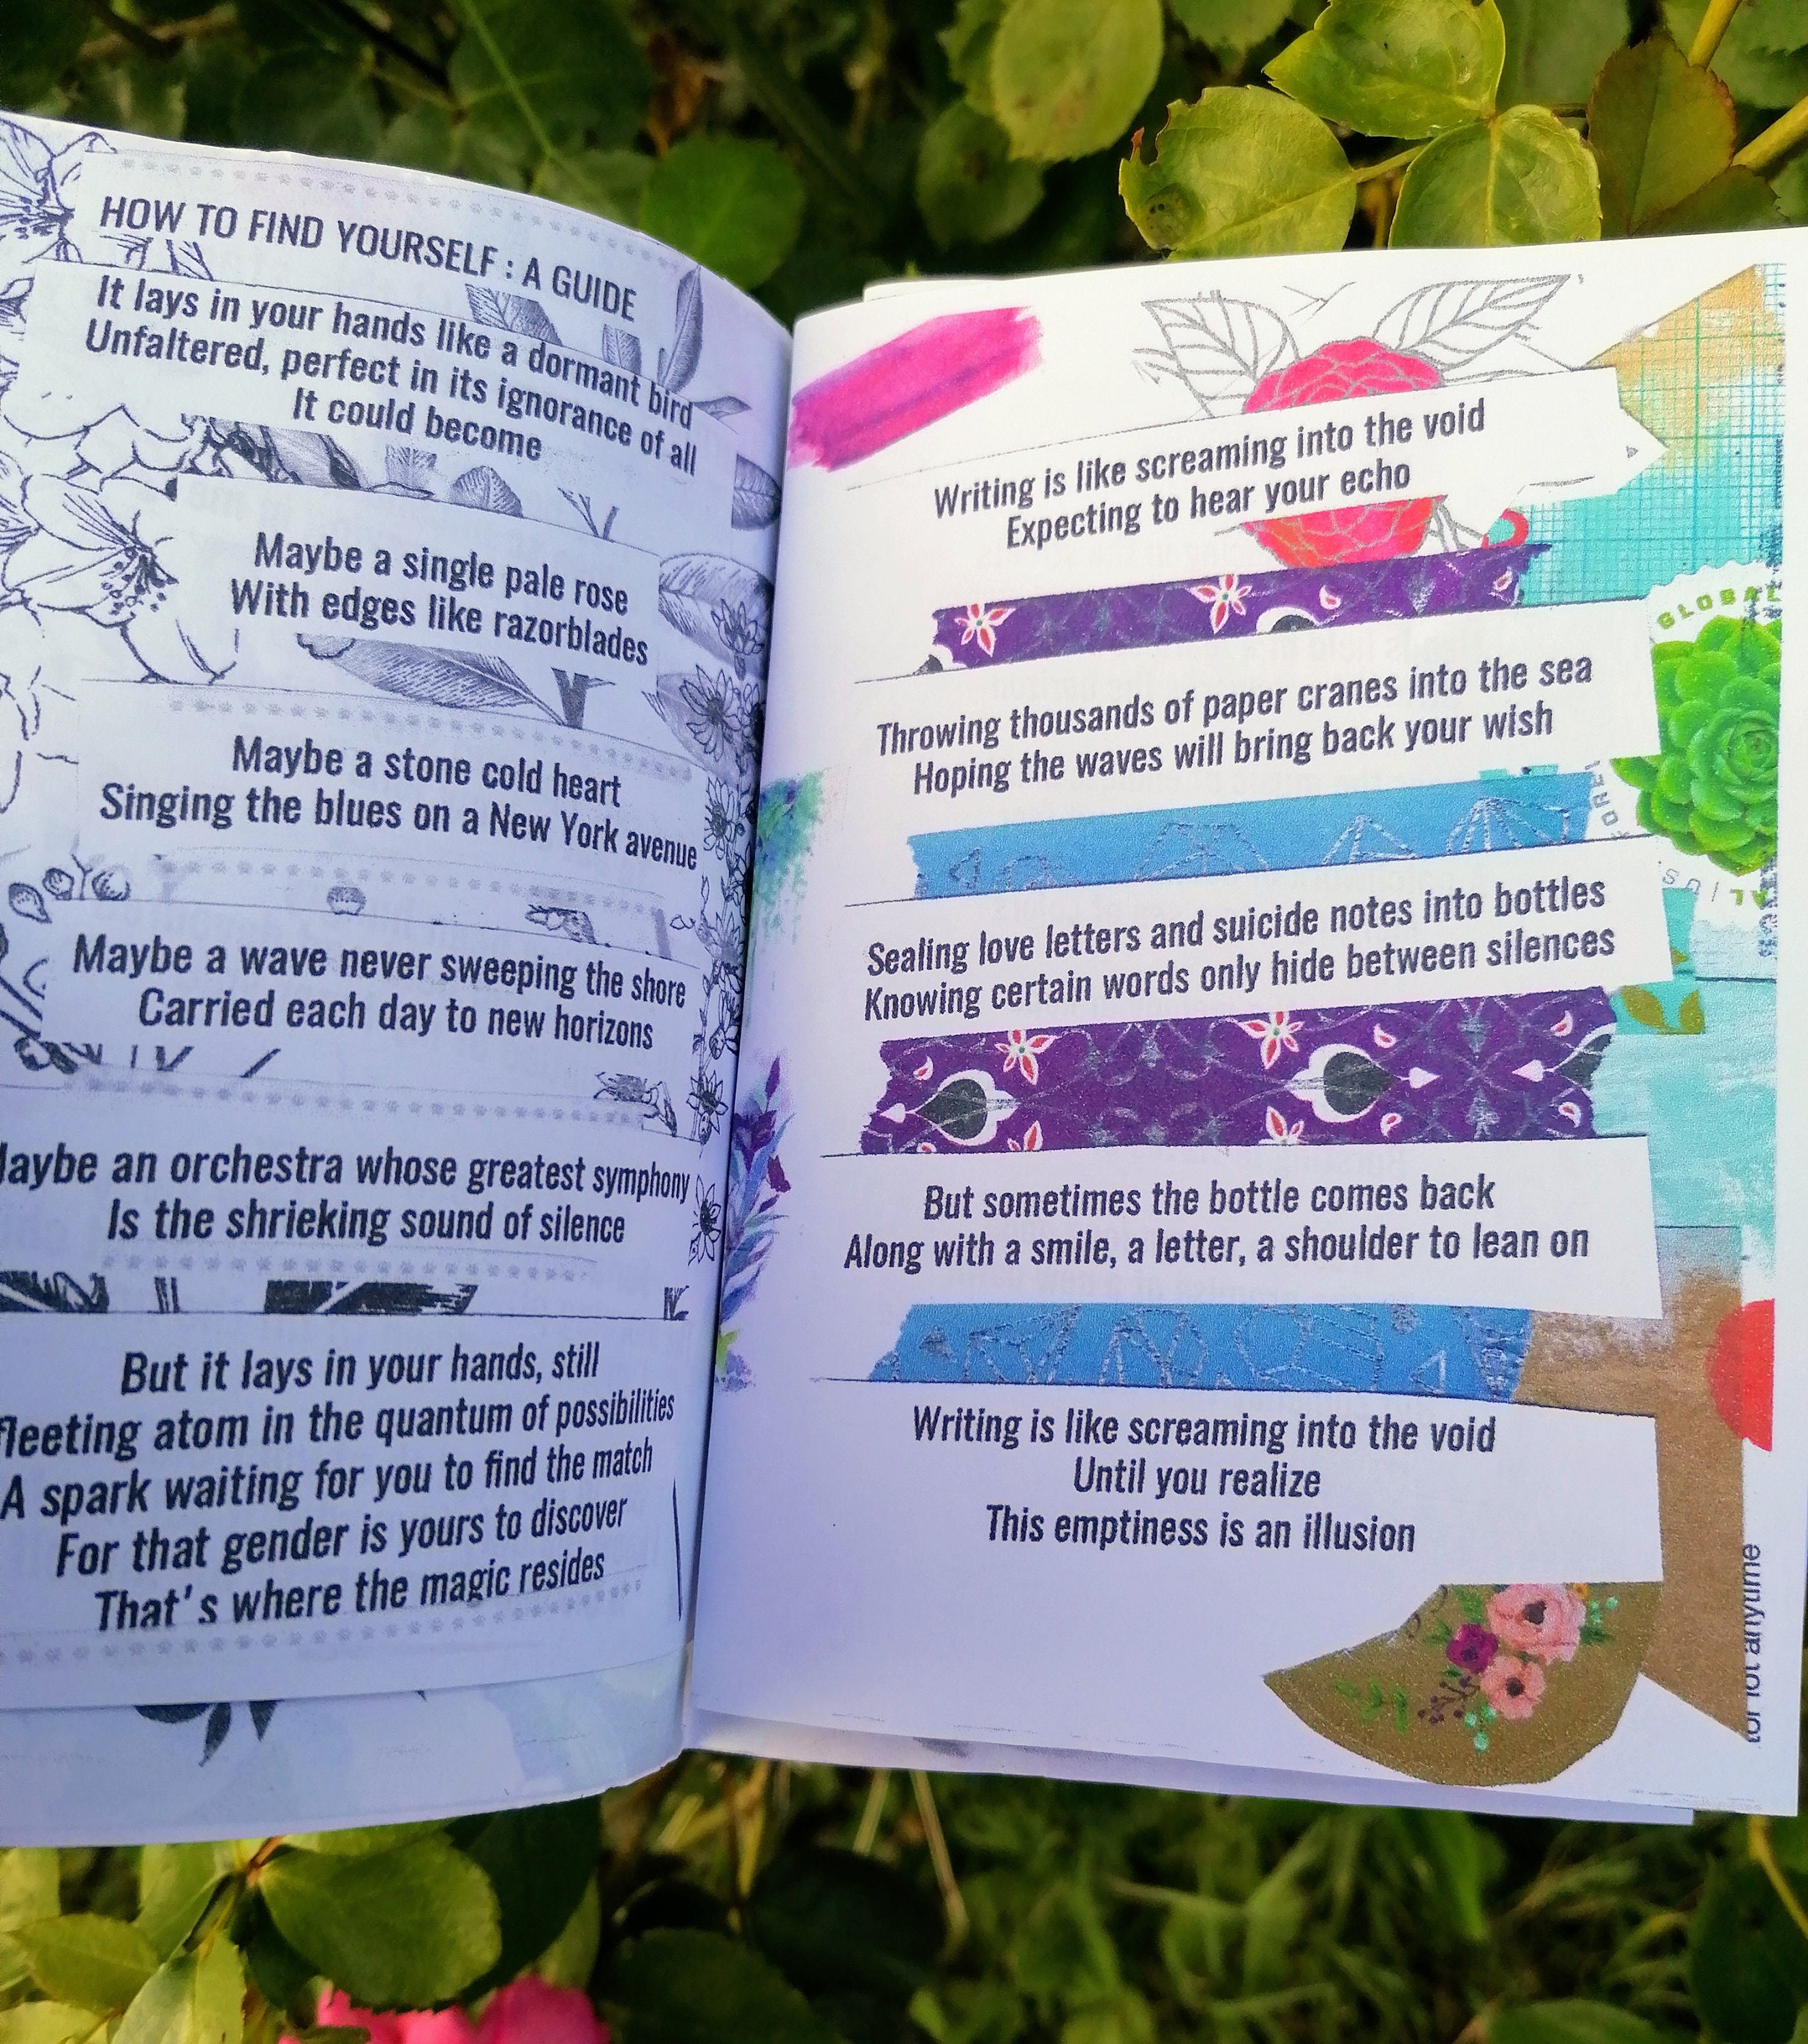 HOW TO FIND YOURSELF : A GUIDE
It lays in your hands like a dormant bird
Unfaltered, perfect in its ignorance of all
It could become
Maybe a single pale rose
With edges like razorblades
Maybe a stone cold heart
Singing the blues on a New York avenue
Maybe a wave never sweeping the shore
Carried each day to new horizons
Maybe an orchestra whose greatest symphony
Is the shrieking sound of silence
But it lays in your hands, still
fleeting atom in the quantum of possibilities
A spark waiting for you to find the match
For that gender is yours to discover
That's where the magic resides
Writing is like screaming into the void
Expecting to hear your echo
Throwing thousands of paper cranes into the sea
Hoping the waves will bring back your wish
Sealing love letters and suicide notes into bottles
Knowing certain words only hide between silences
But sometimes the bottle comes back
Along with a smile, a letter, a shoulder to lean on
Writing is like screaming into the void
Until you realize
This emptiness is an illusion
GLOBAL
anytime